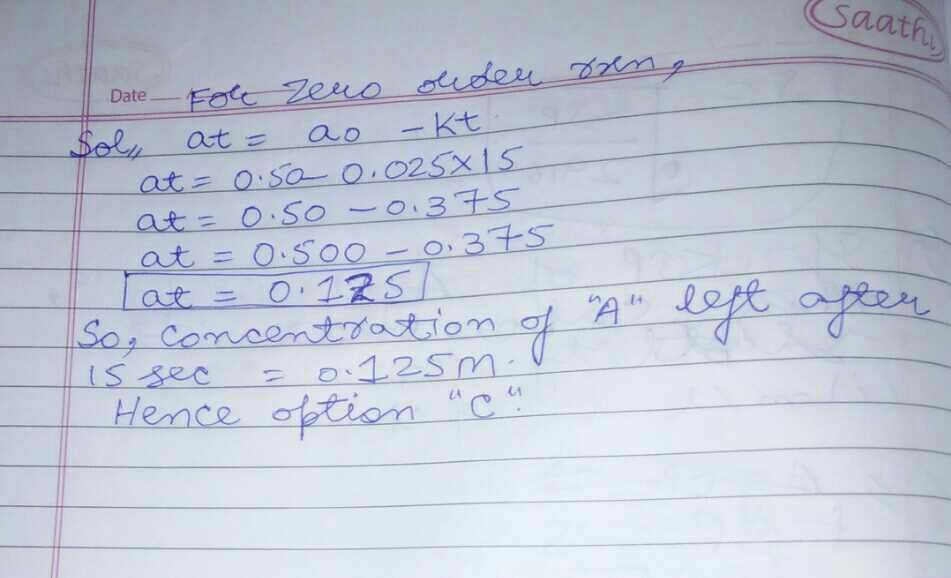 Saathi
Date For zero order rxn,
Sol,, at = ao - Kt
at = 0.50 - 0.025x15
at = 0.50 - 0.375
at = 0.500 - 0.375
at = 0.125
So, concentration of "A" left after
15 sec = 0.125m.
Hence option "C".